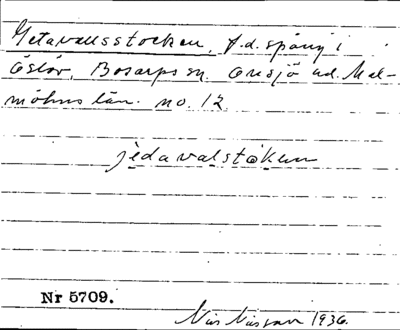 Getavallsstocken, f.d. spång i
Östör, Bosarps sn. Onsjö hd. Mal-
möhus län. no. 12
jedavalstöken
Nr 5709.
Nils Nilsson 1936.